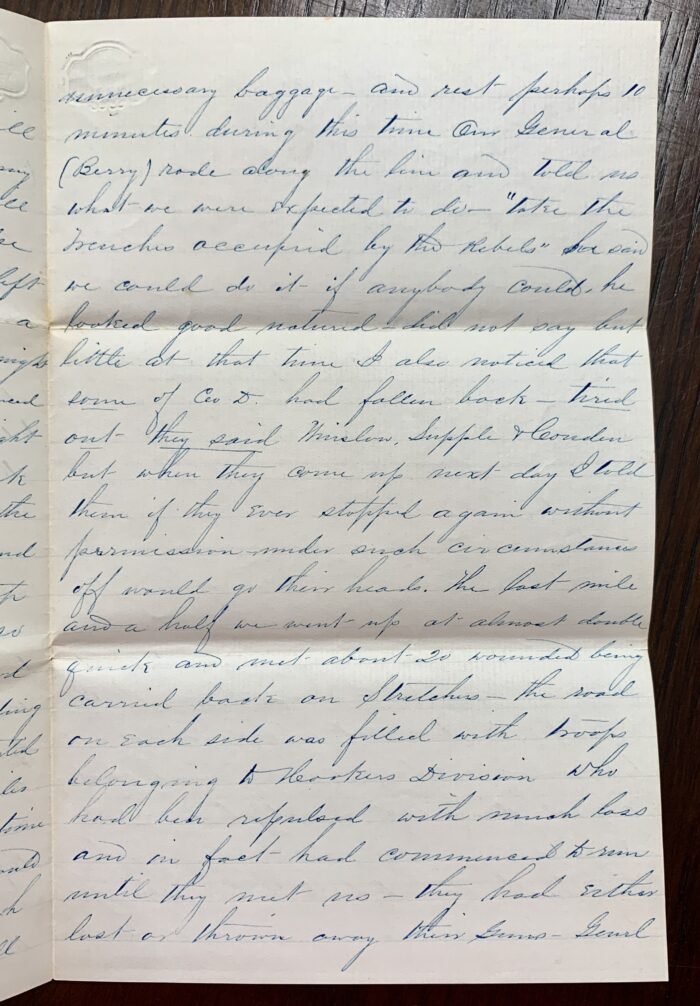 unnecessary baggage – and rest perhaps 10
minutes. during this time Our General
(Berry) rode along the line and told us
what we were expected to do – "take the
Trenches occupied by the Rebels" he said
we could do it if anybody could, he
looked good natured – did not say but
little at that time I also noticed that
some of Co D. had fallen back – tired
out they said Winslow, Supple &
but when they come up next day I told
them if they Ever stopped again without
permission under such circumstances
off would go their heads. The last mile
and a half we went up at almost double
quick and met about 20 wounded being
carried back on Stretchers – the road
on Each side was filled with troops
belonging to Hookers Division who
had ben repulsed with much loss
and in fact had commenced to run
until they met us – they had Either
lost or thrown away their Guns – Genrl
ill
left
a
night
ght
k
the
nd
so
d
ting
time